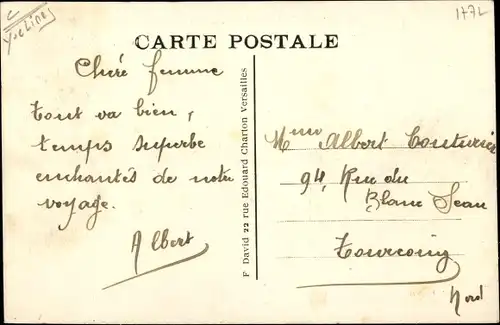 Yvelines
1172
CARTE POSTALE
Chère femme
tout va bien,
temps superbe
enchantés de notre
voyage.
Albert
P David 22 rue Edouard Charton Versailles
Mme Albert
94, Rue du
Blanc Seau
Tourcoing
Nord